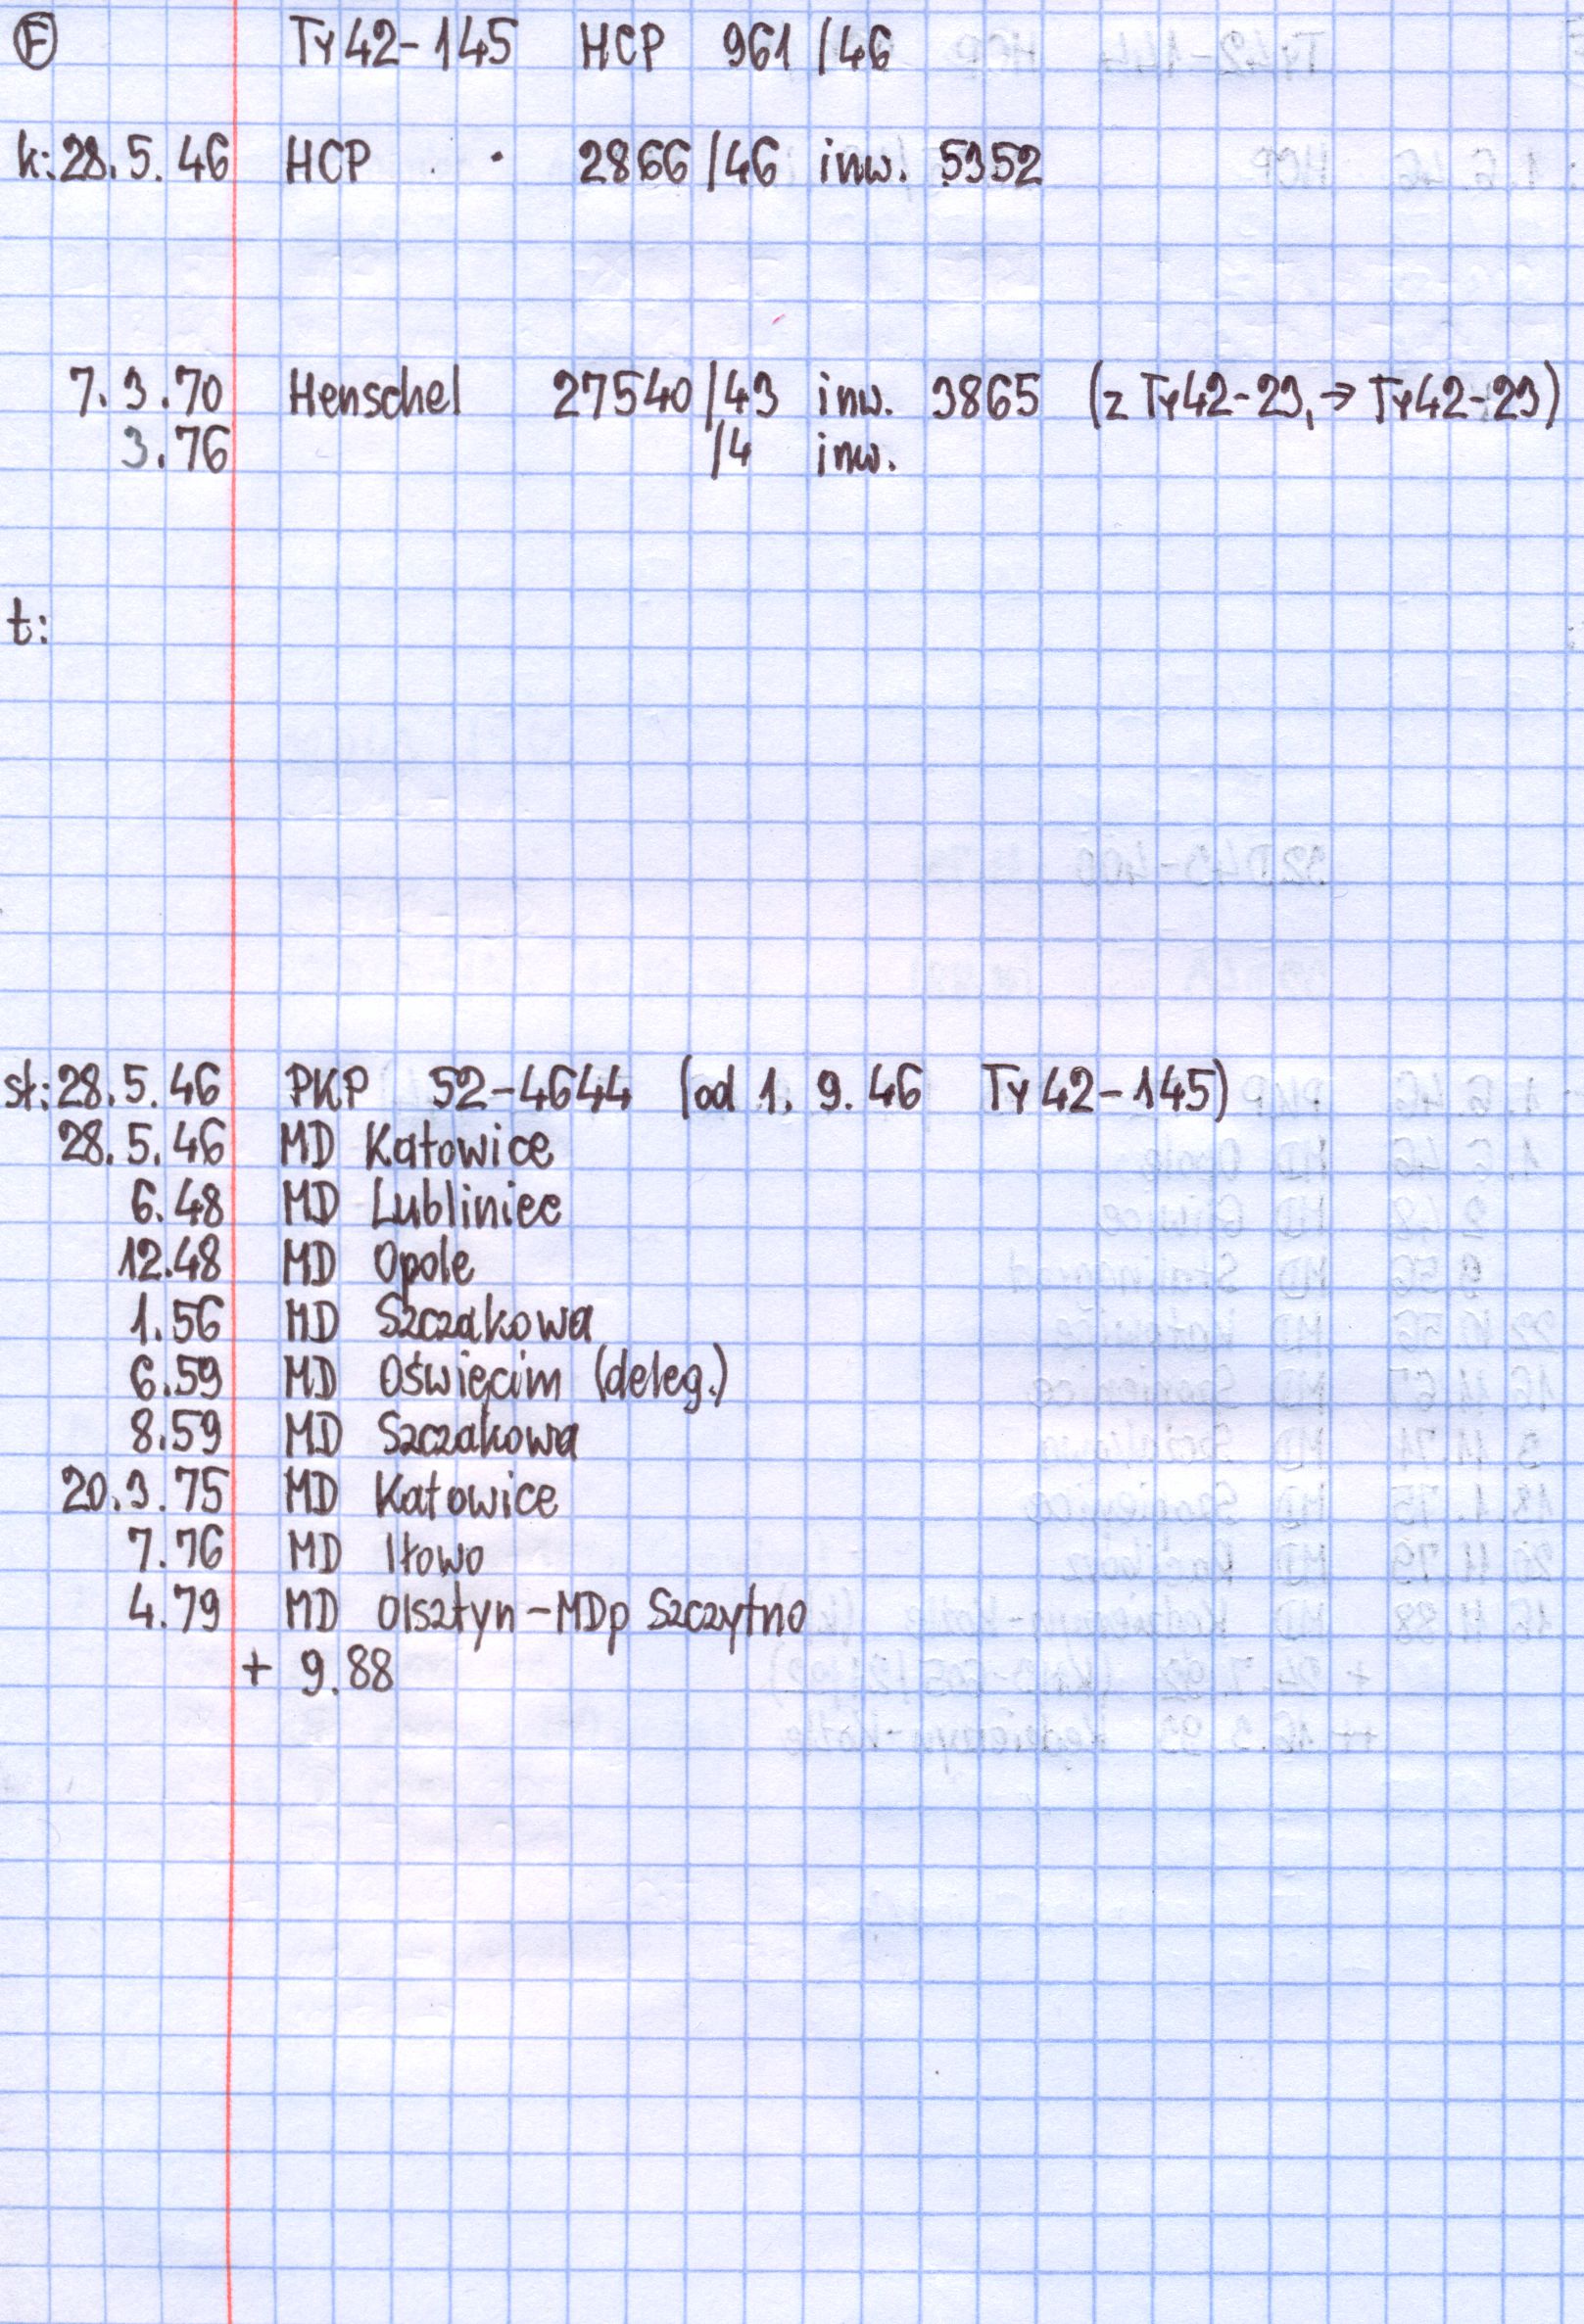 F Ty42-145 HCP 961/46
k: 28.5.46 HCP 2866/46 inw. 5352
7.3.70 Henschel 27540/43 inw. 3865 (z Ty42-23, → Ty42-23)
3.76 /4 inw.
t:
st: 28.5.46 PKP 52-4644 (od 1.9.46 Ty42-145)
28.5.46 MD Katowice
6.48 MD Lubliniec
12.48 MD Opole
1.56 MD Szczakowa
6.59 MD Oświęcim (deleg.)
8.59 MD Szczakowa
20.3.75 MD Katowice
7.76 MD Iłowo
4.79 MD Olsztyn-MDp Szczytno
+ 9.88